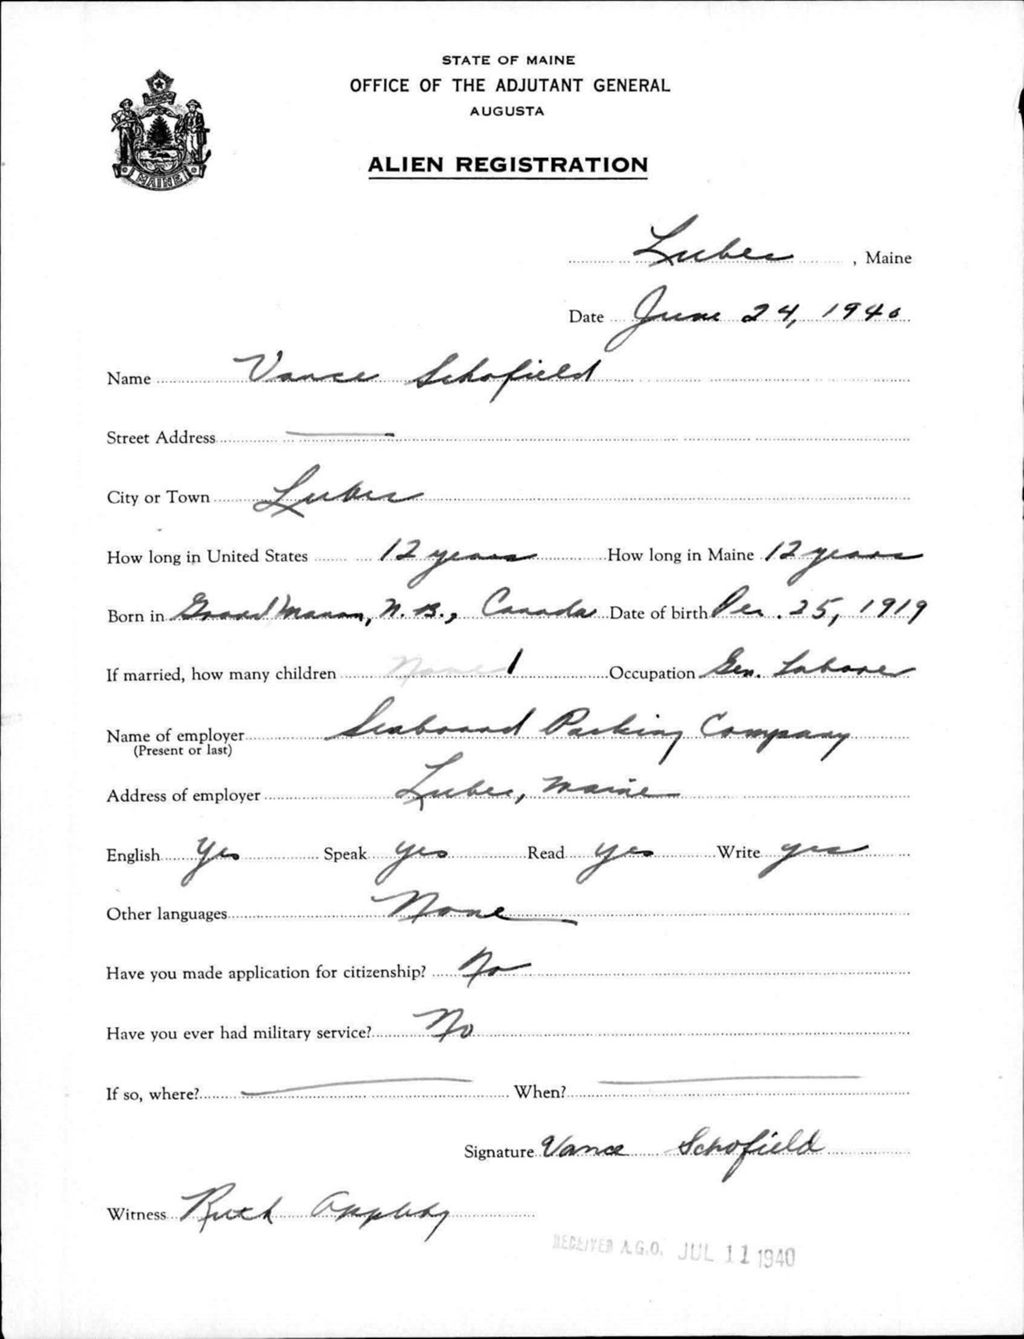 STATE OF MAINE
OFFICE OF THE ADJUTANT GENERAL
AUGUSTA
ALIEN REGISTRATION
MAINE
Lubec, Maine
Date June 24, 1940
Name Vance Schofield
Street Address —
City or Town Lubec
How long in United States 12 years How long in Maine 12 years
Born in Grand Manan, N.B., Canada Date of birth Dec. 25, 1919
If married, how many children None 1 Occupation Gen. Laborer
Name of employer Seaboard Packing Company
(Present or last)
Address of employer Lubec, Maine
English Yes Speak yes Read yes Write yes
Other languages None
Have you made application for citizenship? No
Have you ever had military service? No
If so, where? — When? —
Signature Vance Schofield
Witness Ruth Appleby
RECEIVED A.G.O. JUL 11 1940